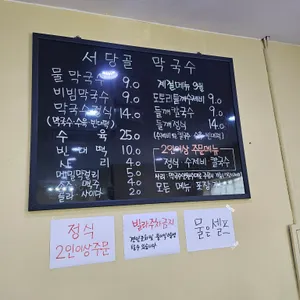 서당골 막국수
물막국수 9.0
비빔막국수 9.0
막국수정식 14.0
(막국수 수육 빈대떡)
수육 25.0
빈대떡
사리
메밀막걸리
소주 맥주
콜라 사이다 2.0
계절메뉴 9월
도토리들깨수제비 9.0
들깨칼국수 9.0
들깨정식 14.0
2인이상 주문메뉴
정식 수제비 칼국수
모든 메뉴 포장
정식
2인이상주문
빌라주차금지
물은셀프